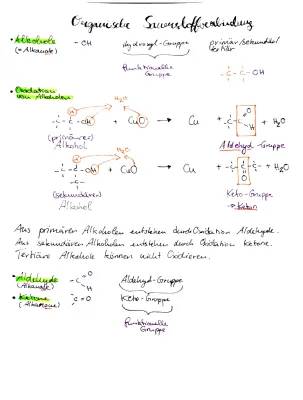 Organische Sauerstoffverbindung
• Alkohole - OH Hydroxyl-Gruppe primär/sekundär/
(= Alkanole) tertiär
funktionelle
Gruppe
-C-C-OH
• Oxidation
von Alkoholen H₂O
-C-C-OH + CuO → Cu + -C-C + H₂O
(primärer)
Alkohol
Aldehyd-Gruppe
H₂O
-C-C-OH + CuO → Cu + -C-C-C- + H₂O
(sekundären)
Alkohol
Keto-Gruppe
→ Keton
Aus primären Alkoholen entstehen durch Oxidation Aldehyde.
Aus sekundären Alkoholen entstehen durch Oxidation ketone.
Tertiäre Alkohole können nicht Oxidieren.
• Aldehyde -C O H Aldehyd-Gruppe
• Ketone C=O Keto-Gruppe
funktionelle
Gruppe